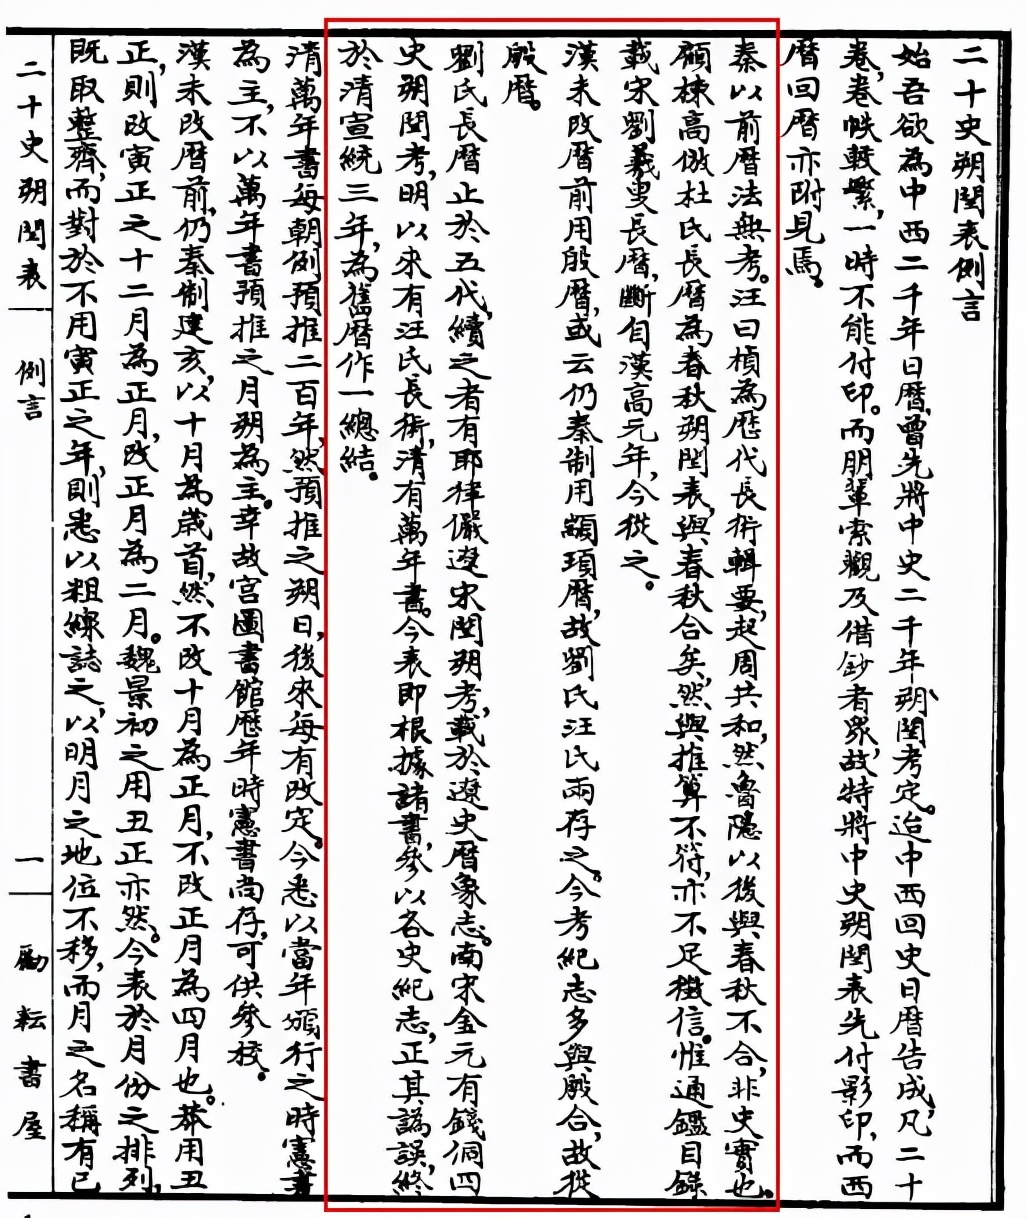 二十史朔閏表例言
始吾欲為中西二千年日曆，曾先將中史二千年朔閏考定。迨中西回史日曆告成，凡二十
卷，卷帙較繁，一時不能付印。而朋輩索觀及借鈔者眾，故特將中史朔閏表先付影印，而西
曆回曆亦附見焉。
秦以前曆法無考。汪曰楨為歷代長術輯要，起周共和，然魯隱以後與春秋不合，非史實也。
顧棟高倣杜氏長曆為春秋朔閏表，與春秋合矣，然與推算不符，亦不足徵信。惟通鑑目錄
載宋劉羲叟長曆，斷自漢高元年，今從之。
漢未改曆前用殷曆，或云仍秦制用顓頊曆，故劉氏汪氏兩存之。今考紀志多與殷合，故從
殷曆。
劉氏長曆止於五代，續之者有耶律儼遼宋閏朔考，載於遼史曆象志。南宋金元有錢侗四
史朔閏考，明以來有汪氏長術，清有萬年書。今表即根據諸書，參以各史紀志，正其譌誤，終
於清宣統三年，為舊曆作一總結。
清萬年書每朝例預推二百年，然預推之朔日，後來每有改定。今悉以當年頒行之時憲書
為主，不以萬年書預推之月朔為主。幸故宮圖書館歷年時憲書尚存，可供參校。
漢未改曆前，仍秦制建亥，以十月為歲首，然不改十月為正月，不改正月為四月也。莽用丑
正，則改寅正之十二月為正月，改正月為二月。魏景初之用丑正亦然。今表於月份之排列，
既取整齊，而對於不用寅正之年，則悉以粗線誌之，以明月之地位不移，而月之名稱有已
二十史朔閏表
例言
一
勵耘書屋